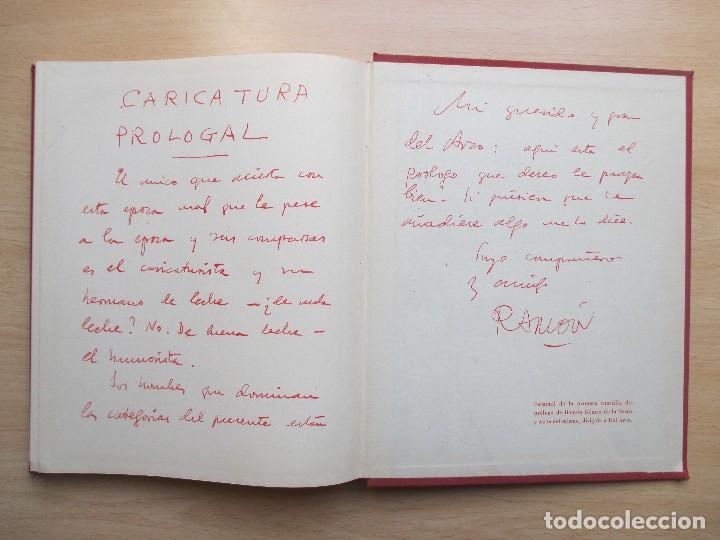 CARICATURA
PROLOGAL
El unico que acierta con
esta epoca mal que le pese
a la epoca y sus comparsas
es el caricaturista y su
hermano de leche – ¿de mala
leche? No. De buena leche –
el humorista.
Los hombres que dominan
las categorias del presente están
Mi querido y gran
del Arco: aqui esta el
prologo que deseo le parezca
bien. Si quisiera que le
añadiese algo me lo dice.
Suyo compañero
y amigo
RAMÓN
Facsímil de la primera cuartilla del
prólogo de Ramón Gómez de la Serna
y carta del mismo, dirigida a Del Arco.
todocoleccion.net